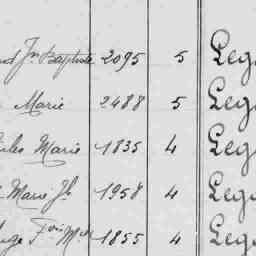 Jn Baptiste 2095 5 Leg
Marie 2488 5 Leg
Jules Marie 1835 4 Leg
Marie Jh 1958 4 Leg
Fois Mie 1855 4 Leg